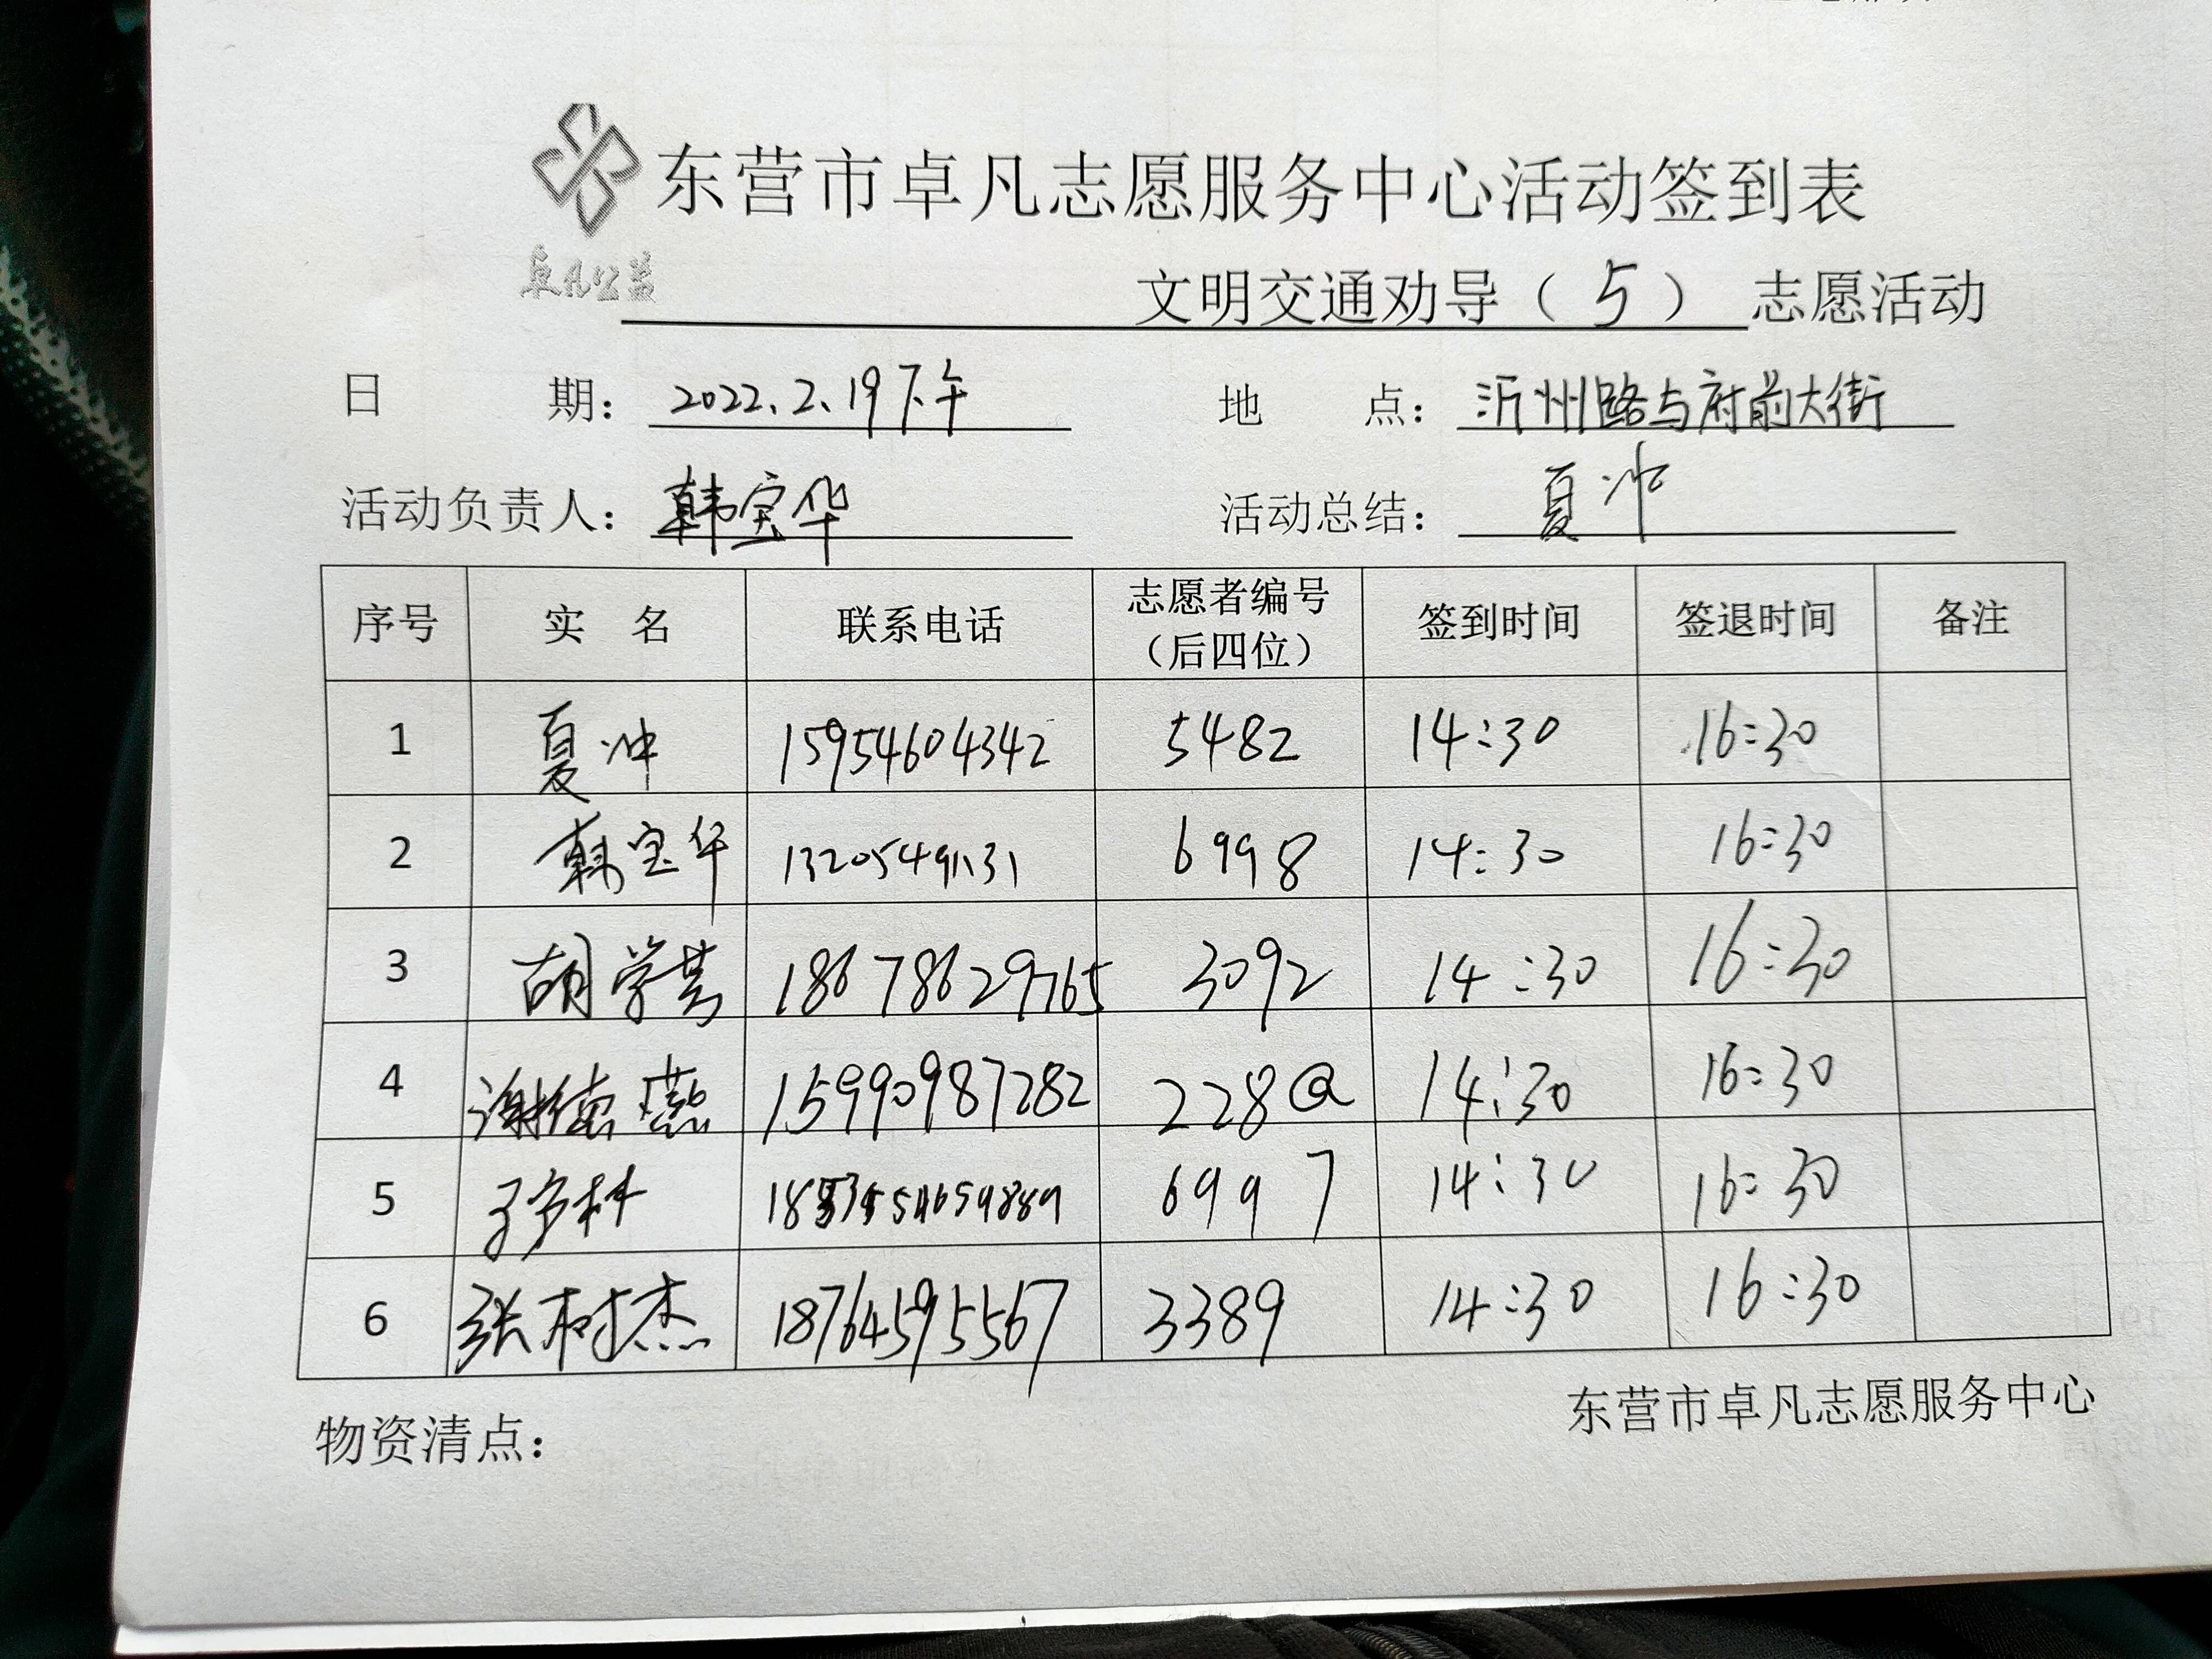 东营市卓凡志愿服务中心活动签到表
卓凡公益
文明交通劝导（5）志愿活动
日期：2022.2.19下午 地点：沂州路与府前大街
活动负责人：韩宝华 活动总结：夏冲
序号 实名 联系电话 志愿者编号（后四位） 签到时间 签退时间 备注
1 夏冲 15954604342 5482 14:30 16:30
2 韩宝华 13205491131 6998 14:30 16:30
3 胡学芸 18678629765 3092 14:30 16:30
4 谢德燕 15990987282 228@ 14:30 16:30
5 6997 14:30 16:30
6 张树杰 18764595567 3389 14:30 16:30
东营市卓凡志愿服务中心
物资清点：